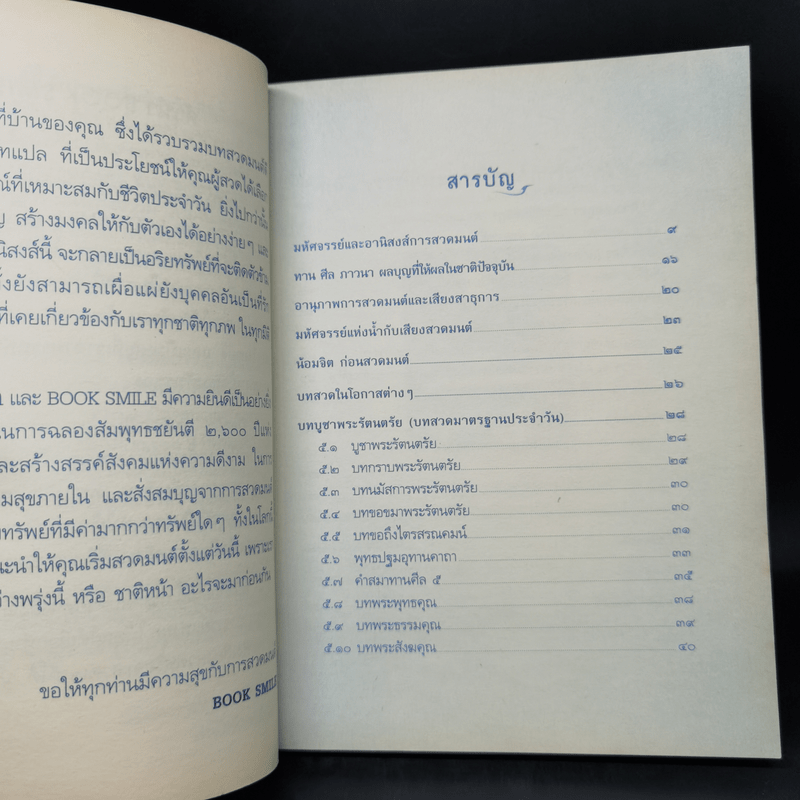 ที่บ้านของคุณ ซึ่งได้รวบรวมบทสวดมนต์
ทแปล ที่เป็นประโยชน์ให้คุณผู้สวดได้เลือก
ณ์ที่เหมาะสมกับชีวิตประจำวัน ยิ่งไปกว่านั้น
ญ สร้างมงคลให้กับตัวเองได้อย่างง่ายๆ และ
นิสงส์นี้ จะกลายเป็นอริยทรัพย์ที่จะติดตัวข้าม
ั้งยังสามารถเผื่อแผ่ยังบุคคลอันเป็นที่รัก
ที่เคยเกี่ยวข้องกับเราทุกชาติทุกภพ ในทุกมิติ
และ BOOK SMILE มีความยินดีเป็นอย่างยิ่ง
นการฉลองสัมพุทธชยันตี ๒,๖๐๐ ปีแห่ง
ละสร้างสรรค์สังคมแห่งความดีงาม ในการ
มสุขภายใน และสั่งสมบุญจากการสวดมนต์
ทรัพย์ที่มีค่ามากกว่าทรัพย์ใดๆ ทั้งในโลกนี้
นะนำให้คุณเริ่มสวดมนต์ตั้งแต่วันนี้ เพราะเรา
างพรุ่งนี้ หรือ ชาติหน้า อะไรจะมาก่อนกัน
ขอให้ทุกท่านมีความสุขกับการสวดมนต์
BOOK SMILE
สารบัญ
มหัศจรรย์และอานิสงส์การสวดมนต์ ๙
ทาน ศีล ภาวนา ผลบุญที่ให้ผลในชาติปัจจุบัน ๑๖
อานุภาพการสวดมนต์และเสียงสาธุการ ๒๐
มหัศจรรย์แห่งน้ำกับเสียงสวดมนต์ ๒๓
น้อมจิต ก่อนสวดมนต์ ๒๕
บทสวดในโอกาสต่างๆ ๒๖
บทบูชาพระรัตนตรัย (บทสวดมาตรฐานประจำวัน) ๒๘
๕.๑ บูชาพระรัตนตรัย ๒๘
๕.๒ บทกราบพระรัตนตรัย ๒๙
๕.๓ บทนมัสการพระรัตนตรัย ๓๐
๕.๔ บทขอขมาพระรัตนตรัย ๓๐
๕.๕ บทขอถึงไตรสรณคมน์ ๓๑
๕.๖ พุทธปฐมอุทานคาถา ๓๓
๕.๗ คำสมาทานศีล ๕ ๓๕
๕.๘ บทพระพุทธคุณ ๓๘
๕.๙ บทพระธรรมคุณ ๓๙
๕.๑๐ บทพระสังฆคุณ ๔๐